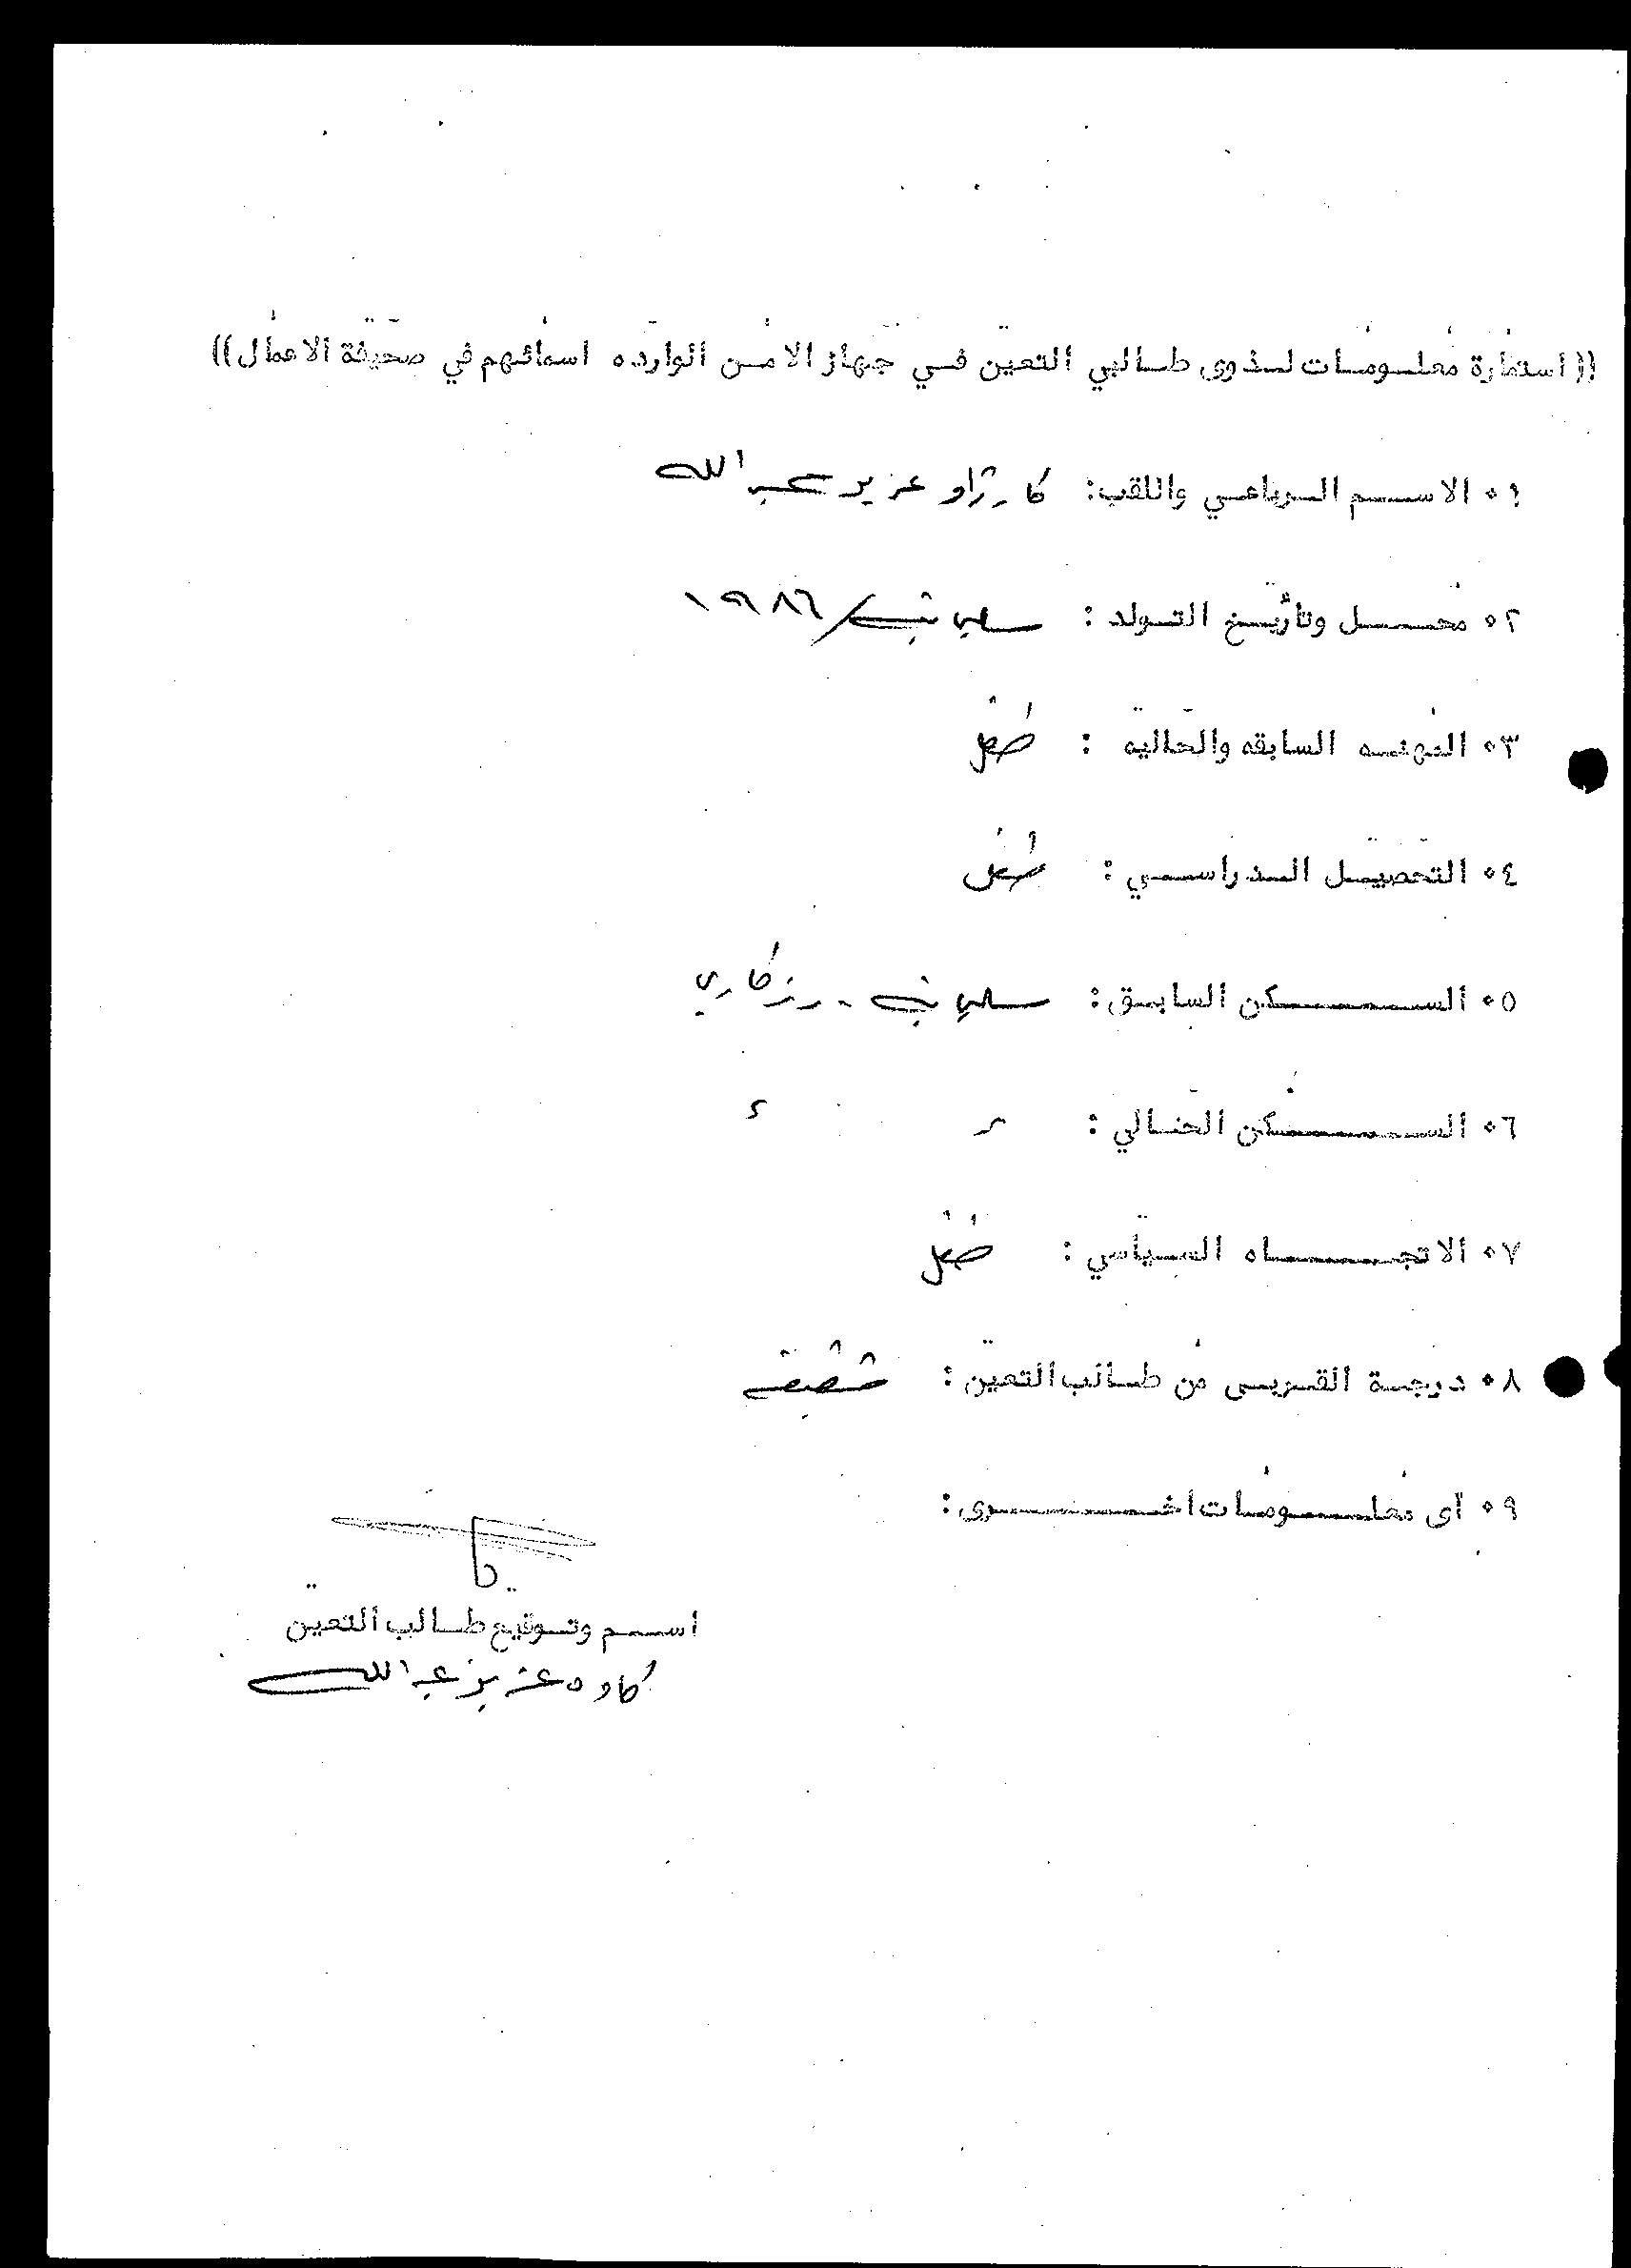 ((استمارة معلومات لذوى طالبي التعين في جهاز الامن الوارده اسمائهم في صحيفة الاعمال))
٠١ الاسم الرباعي واللقب: كارژاو عزيز عبدالله
٠٢ محل وتاريخ التولد : سليمانية/١٩٨٦
٠٣ المهنه السابقه والحاليه : طفل
٠٤ التحصيل الدراسي : طفل
٠٥ السكن السابق : سليمانية - رزكاري
٠٦ السكن الحالي : ٪ ٪
٠٧ الاتجاه السياسي : طفل
٠٨ درجة القربى من طالب التعين : شقيقة
٠٩ أى معلومات اخرى :
اسم وتوقيع طالب التعين
كاوه عزيز عبدالله